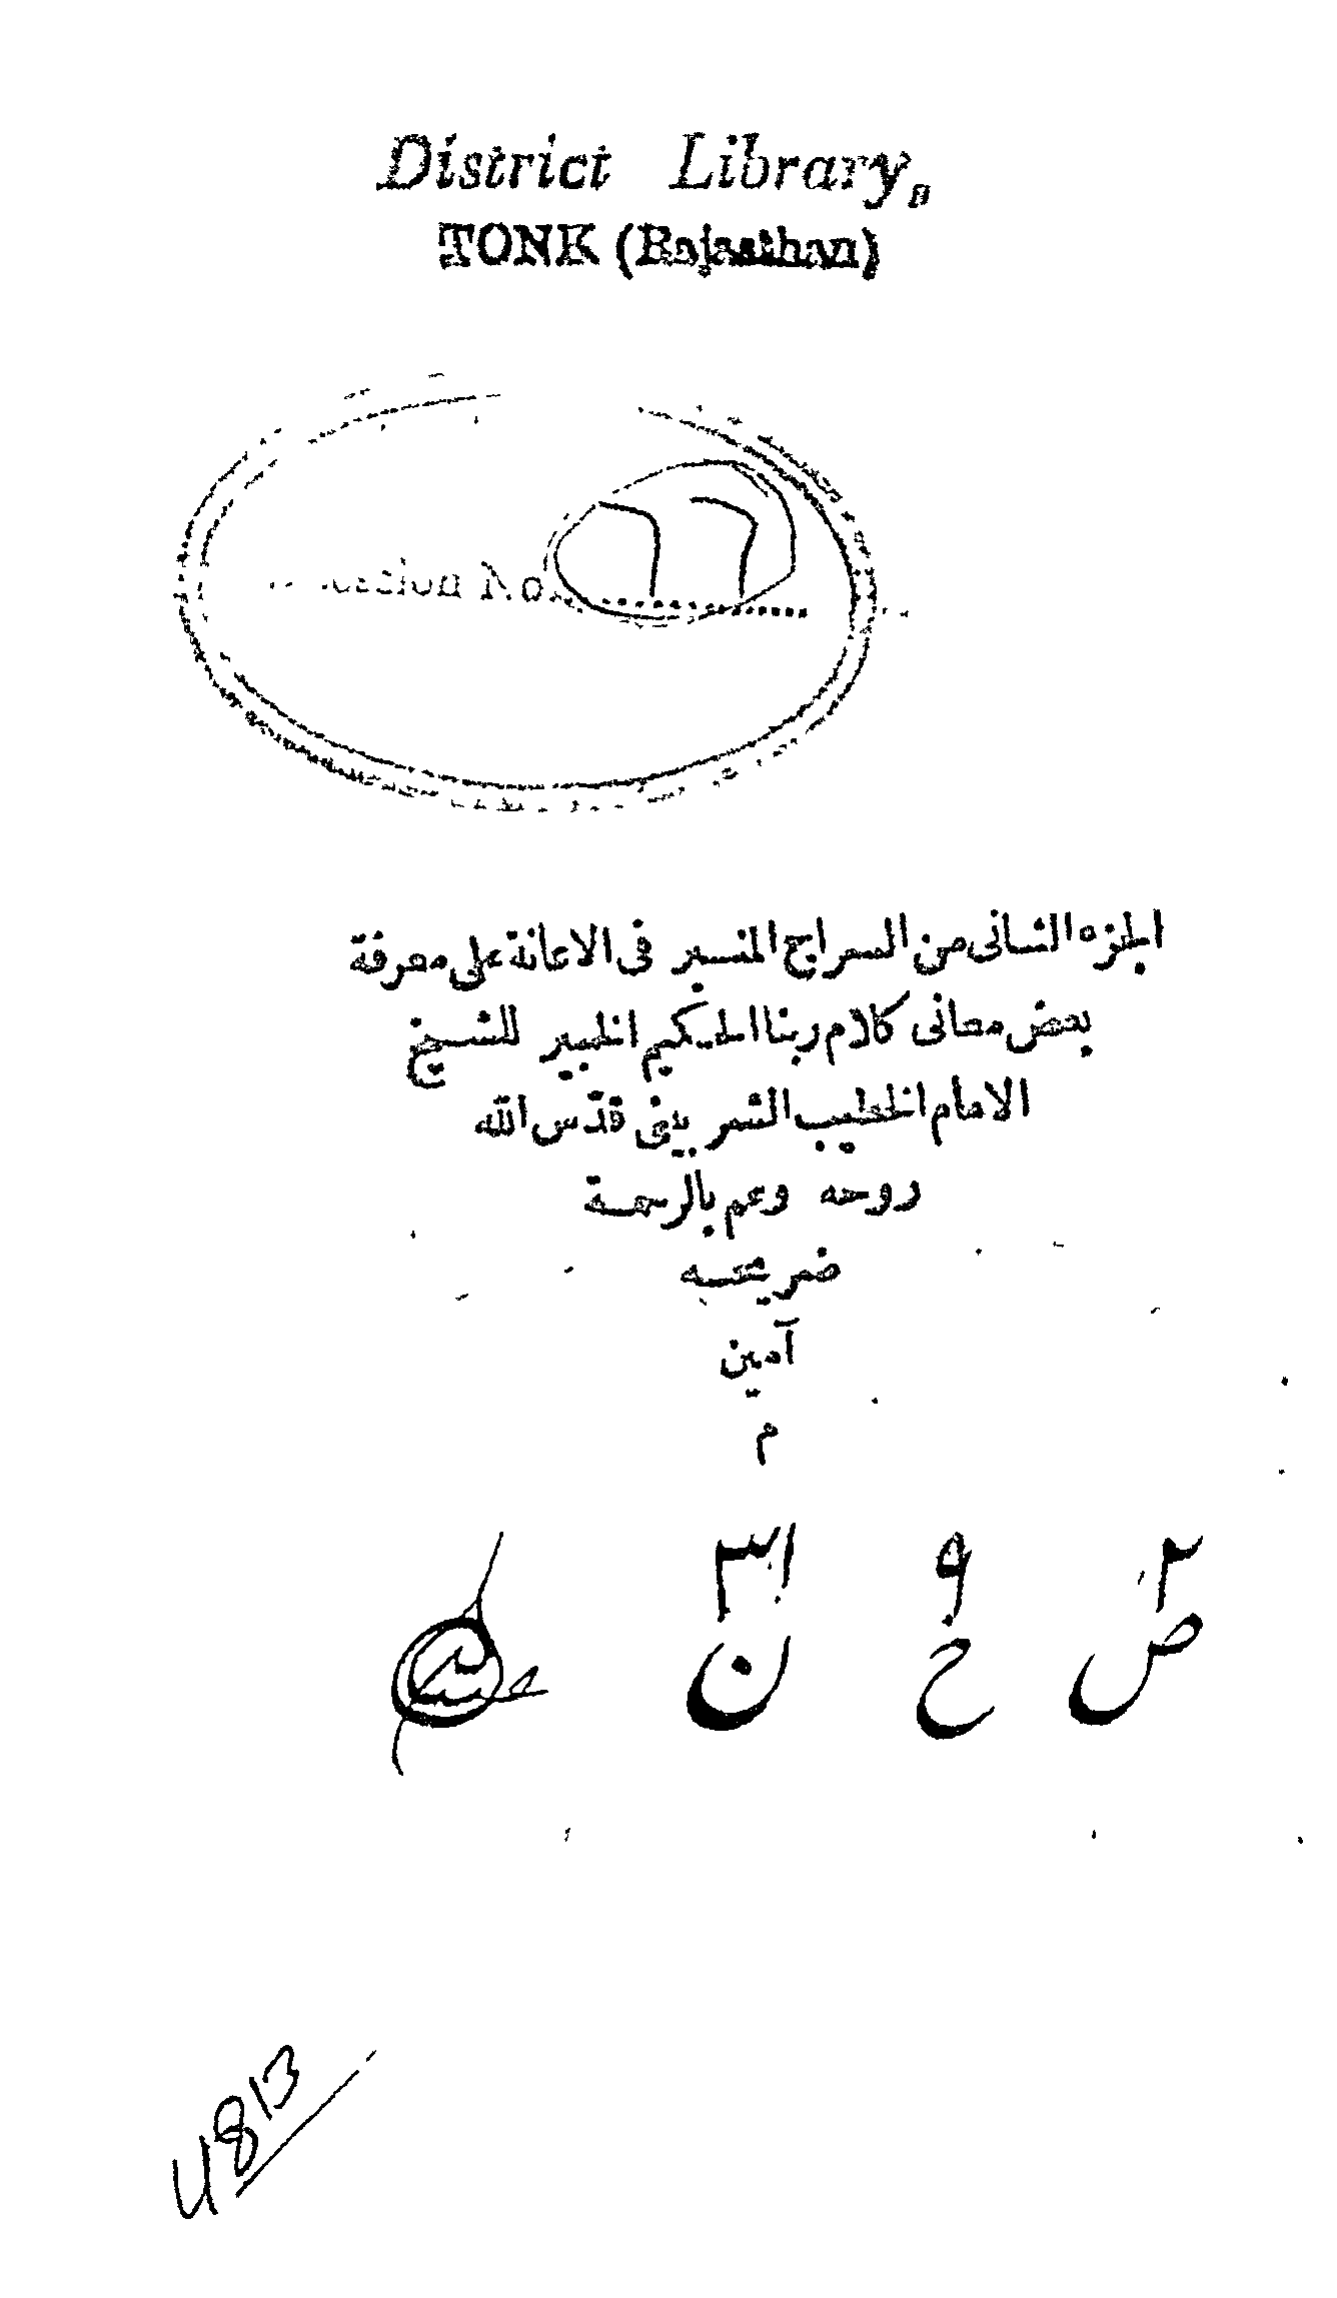 District Library,
TONK (Rajasthan)
No.
الجزء الثانى من السراج المنير فى الاعانة على معرفة
بعض معانى كلام ربنا الحكيم الخبير للشيخ
الامام الخطيب الشربينى قدّس الله
روحه وعم بالرحمة
ضريحه
آمين
م
٢ ٩ ٣١
ص خ ن
4813